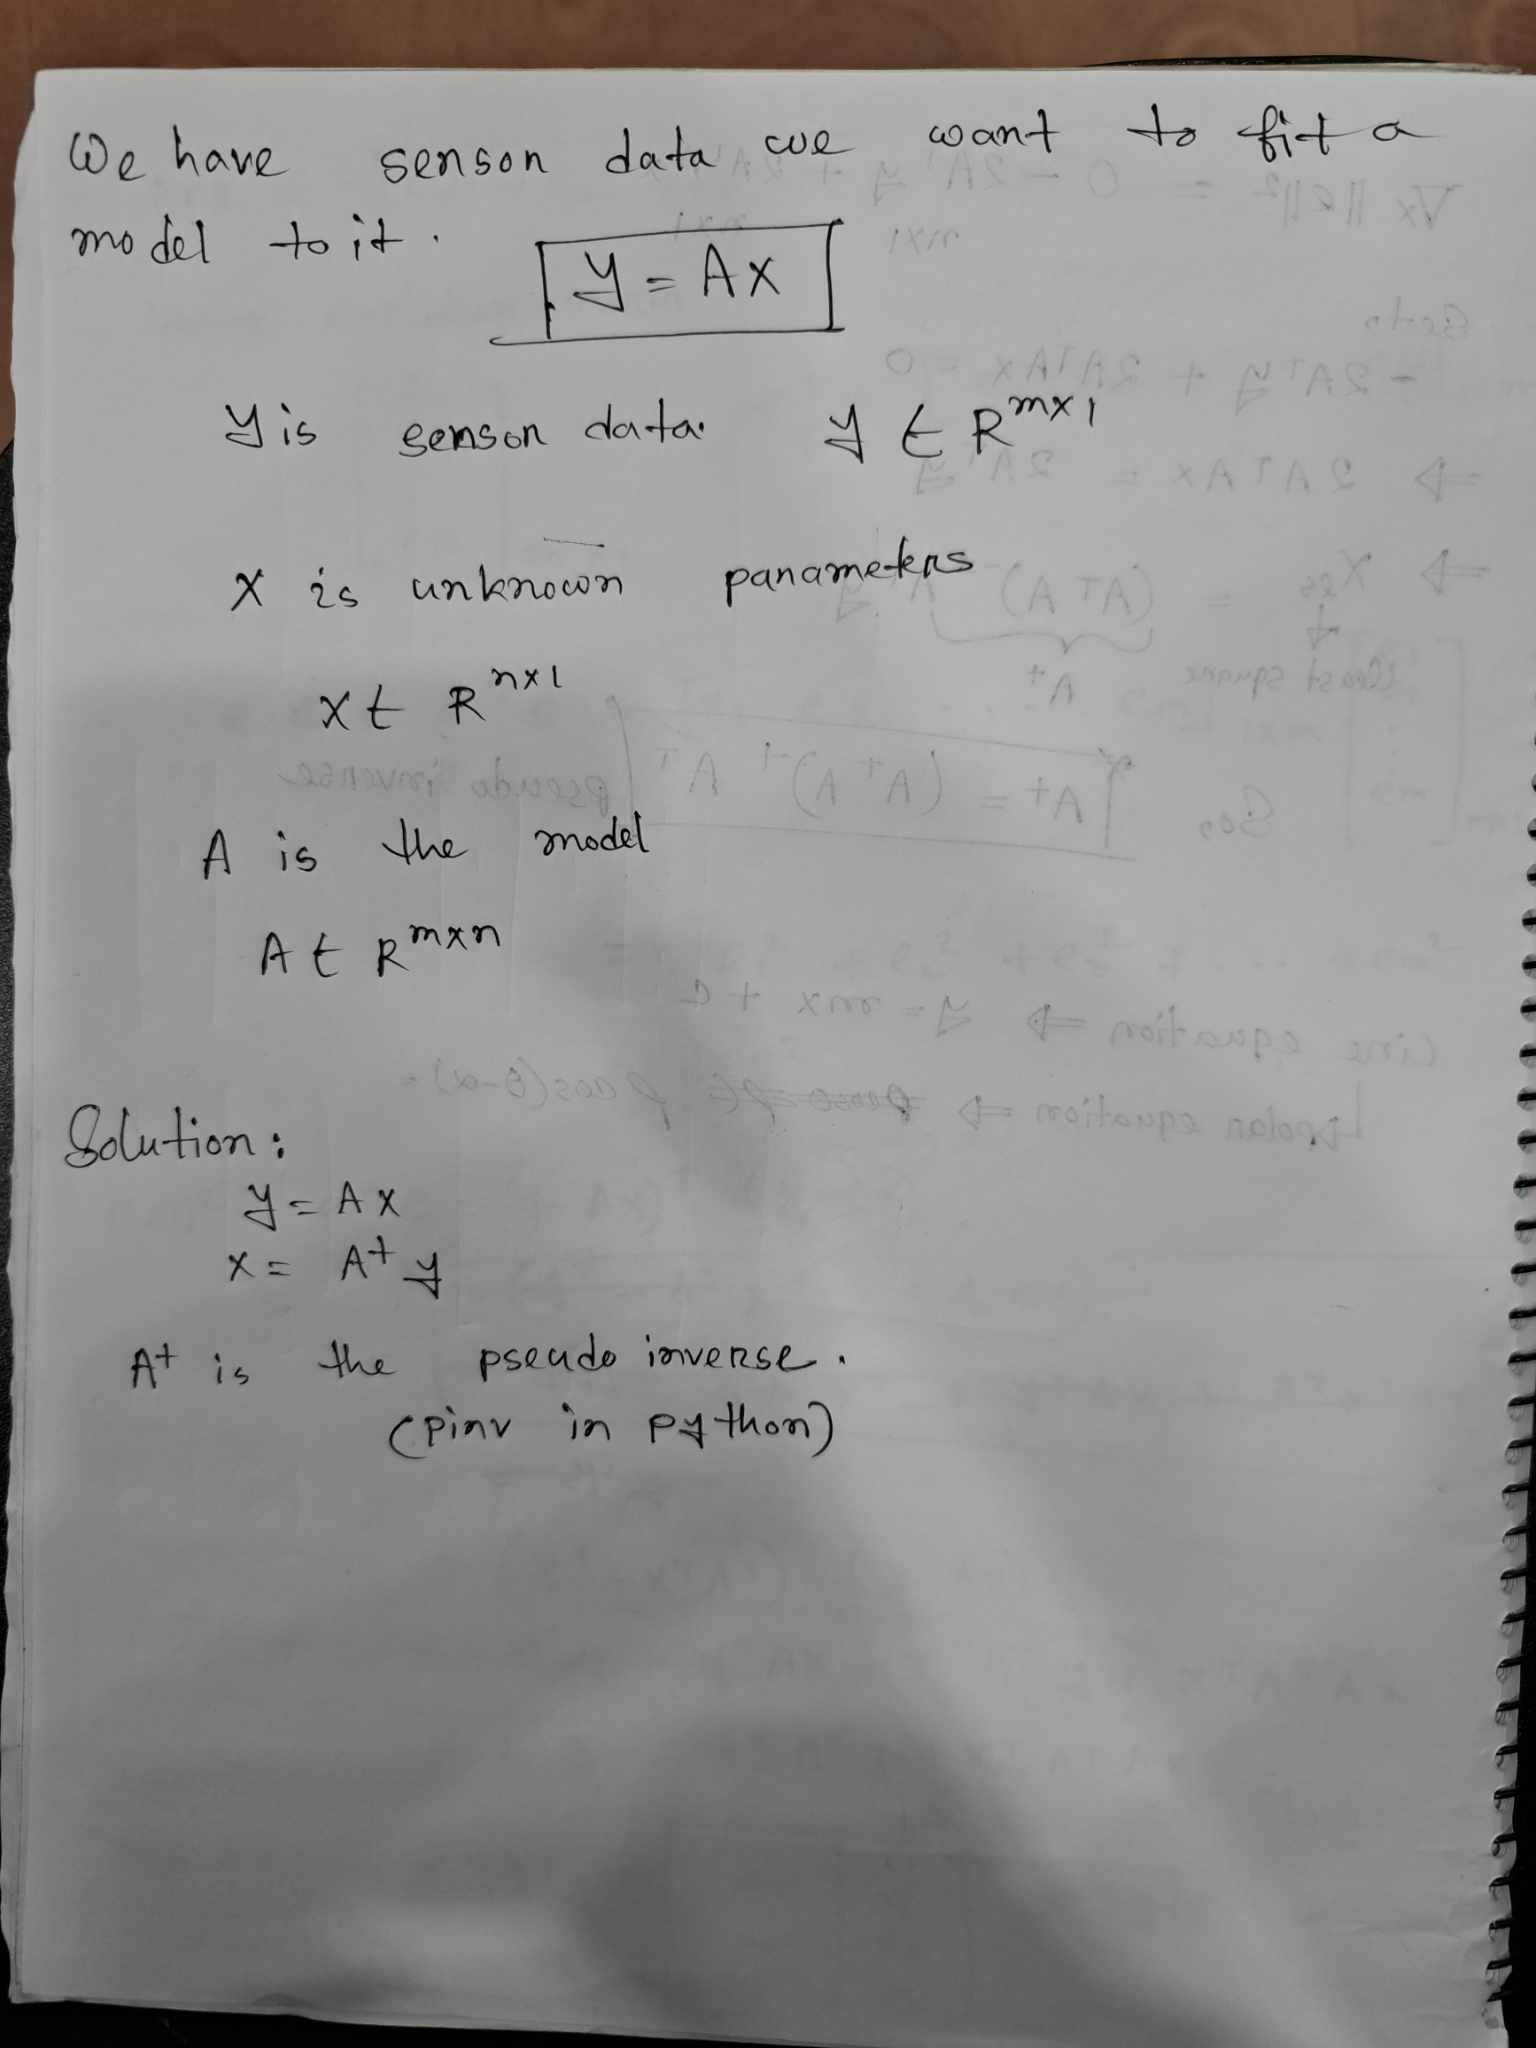 We have senson data we want to fit a
model to it.
y = Ax
y is senson data. y ∈ R^mx1
x is unknown panametens
x ∈ R^nx1
A is the model
A ∈ R^mxn
Solution:
y = Ax
x = A^+ y
A^+ is the pseudo inverse.
(pinv in python)